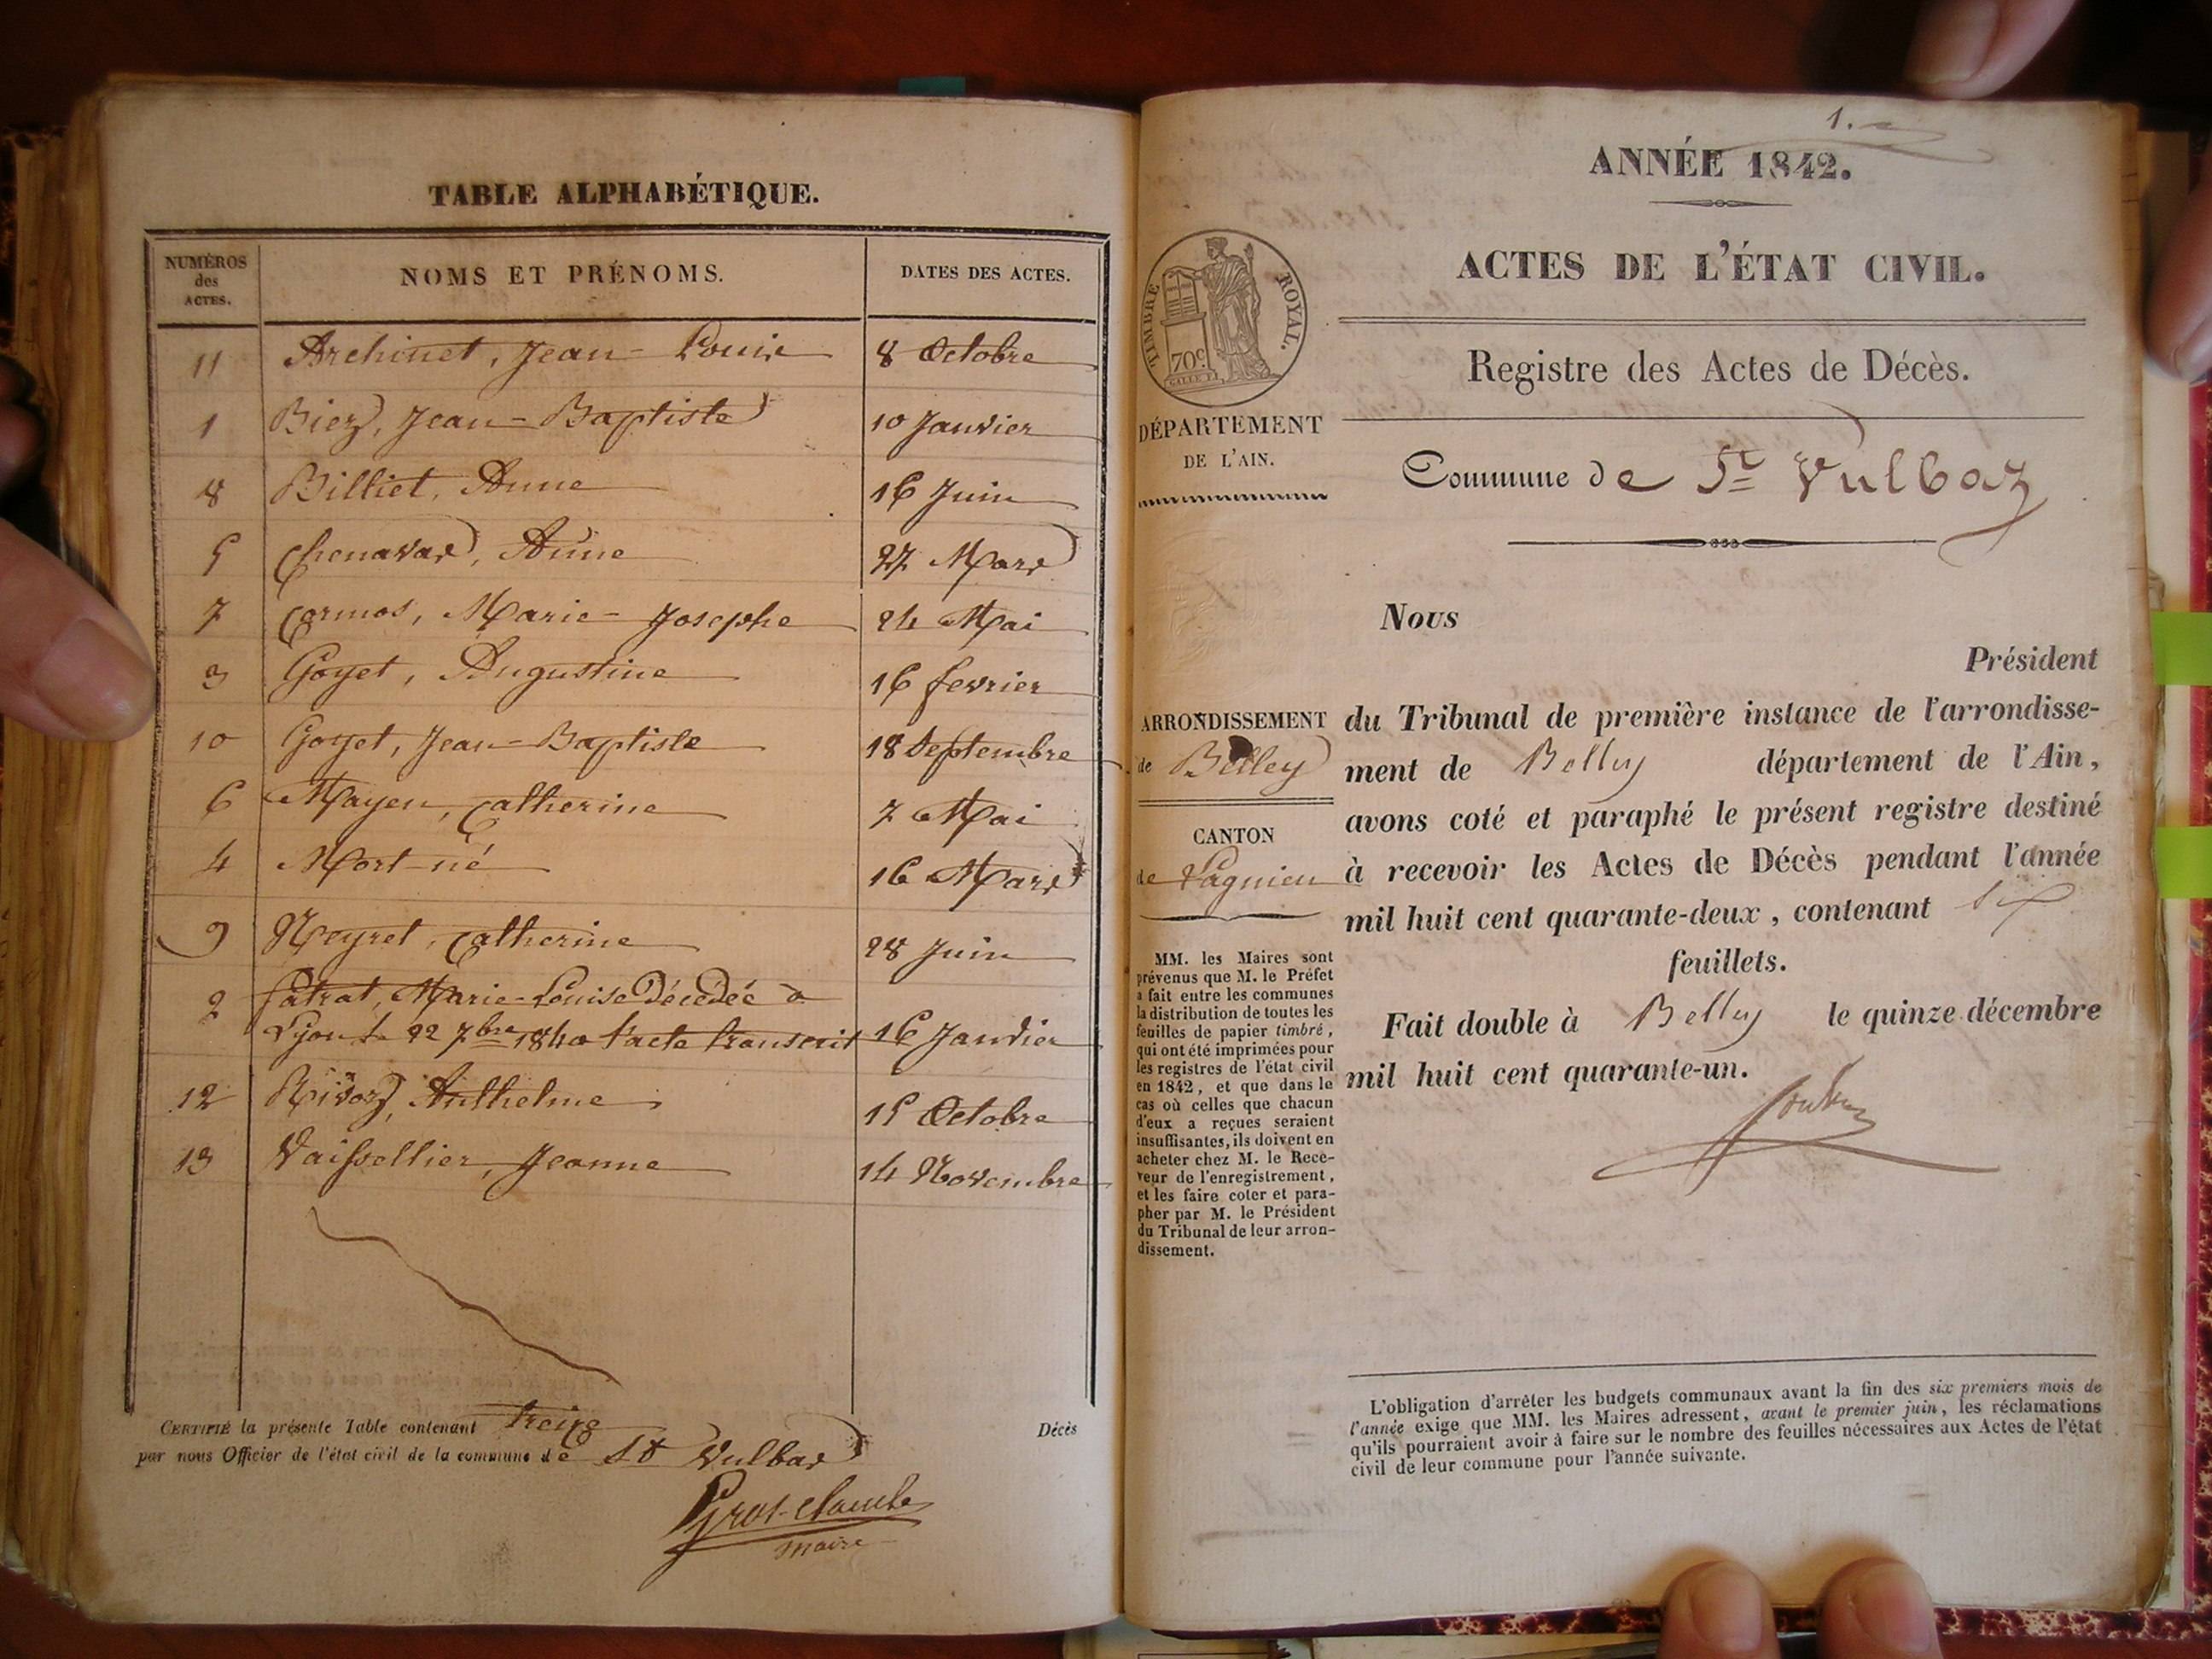 TABLE ALPHABÉTIQUE.
NUMÉROS
des
ACTES.
NOMS ET PRÉNOMS.
DATES DES ACTES.
11 Archinet, Jean-Louis 8 Octobre
1 Biez, Jean-Baptiste 10 Janvier
8 Billiet, Anne 16 Juin
5 Chenavas, Anne 27 Mars
7 Cormos, Marie-Josephe 24 Mai
3 Goyet, Augustine 16 fevrier
10 Goyet, Jean-Baptiste 18 Septembre
6 Mayen, Catherine 7 Mai
4 Mort-né 16 Mars
9 Neyret, Catherine 28 Juin
2 Patrat, Marie-Louise Décédée à
Lyon le 22 7bre 1840 l'acte transcrit 16 Janvier
12 Rivoz, Anthelme 15 Octobre
13 Vaissellier, Jeanne 14 Novembre
CERTIFIÉ la présente Table contenant treize Décès
par nous Officier de l'état civil de la commune de St Vulbas
Gros-Claude
maire
1.
ANNÉE 1842.
ACTES DE L'ÉTAT CIVIL.
TIMBRE ROYAL.
70c
Registre des Actes de Décès.
DÉPARTEMENT
DE L'AIN.
Commune de St Vulbaz
Nous
Président
ARRONDISSEMENT
de Belley
CANTON
de Lagnieu
du Tribunal de première instance de l'arrondisse-
ment de Belley département de l'Ain,
avons coté et paraphé le présent registre destiné
à recevoir les Actes de Décès pendant l'année
mil huit cent quarante-deux, contenant six
feuillets.
Fait double à Belley le quinze décembre
mil huit cent quarante-un.
MM. les Maires sont
prévenus que M. le Préfet
a fait entre les communes
la distribution de toutes les
feuilles de papier timbré,
qui ont été imprimées pour
les registres de l'état civil
en 1842, et que dans le
cas où celles que chacun
d'eux a reçues seraient
insuffisantes, ils doivent en
acheter chez M. le Rece-
veur de l'enregistrement,
et les faire coter et para-
pher par M. le Président
du Tribunal de leur arron-
dissement.
L'obligation d'arrêter les budgets communaux avant la fin des six premiers mois de
l'année exige que MM. les Maires adressent, avant le premier juin, les réclamations
qu'ils pourraient avoir à faire sur le nombre des feuilles nécessaires aux Actes de l'état
civil de leur commune pour l'année suivante.